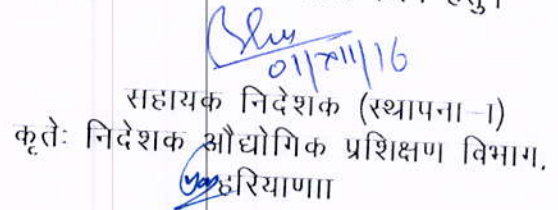 01/XII/16
सहायक निदेशक (स्थापना-I)
कृतेः निदेशक औद्योगिक प्रशिक्षण विभाग,
हरियाणाा